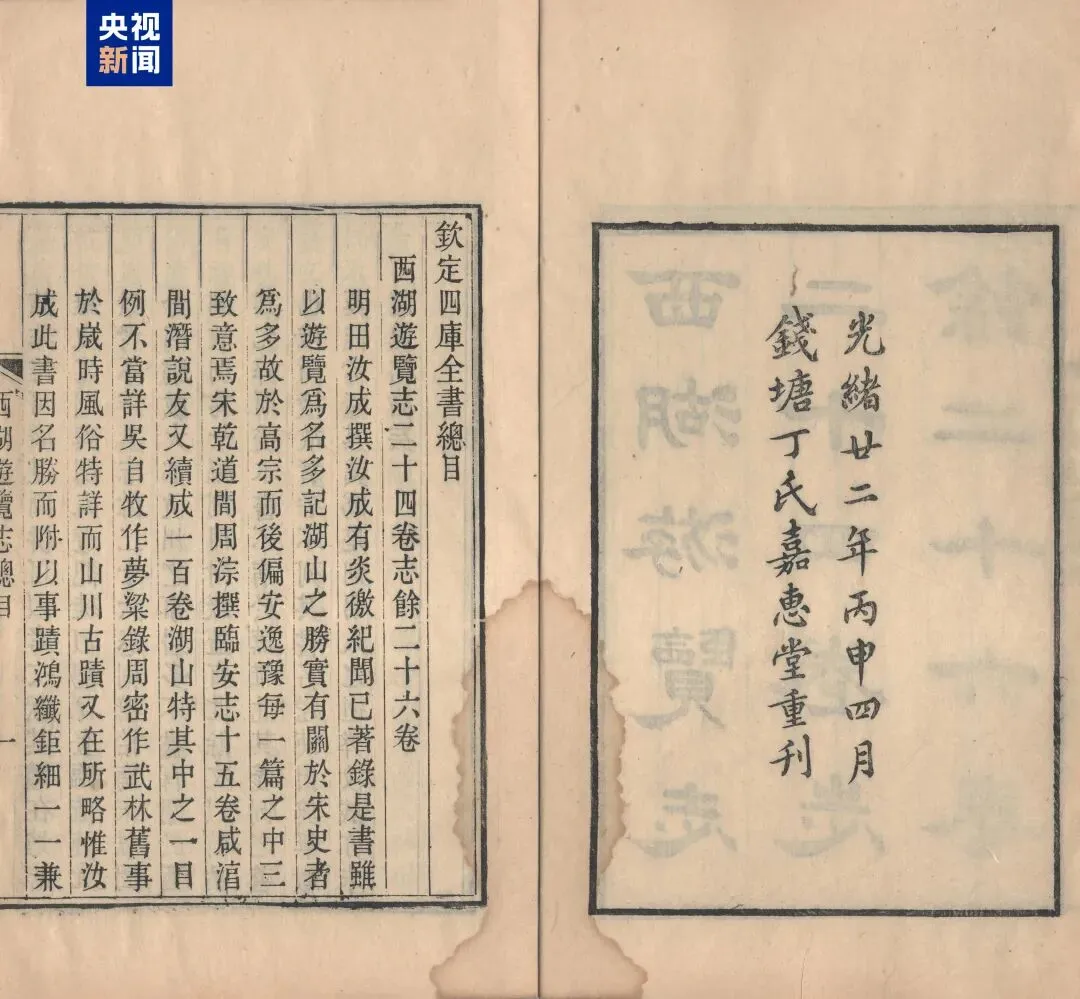 央视
新闻
光緒廿二年丙申四月
錢塘丁氏嘉惠堂重刊
欽定四庫全書總目
西湖遊覽志二十四卷志餘二十六卷
明田汝成撰汝成有炎徼紀聞已著錄是書雖
以遊覽爲名多記湖山之勝實有關於宋史者
爲多故於高宗而後偏安逸豫每一篇之中三
致意焉宋乾道間周淙撰臨安志十五卷咸淳
間潛說友又續成一百卷湖山特其中之一目
例不當詳吳自牧作夢粱錄周密作武林舊事
於歲時風俗特詳而山川古蹟又在所略惟汝
成此書因名勝而附以事蹟鴻纖鉅細一一兼
西湖遊覽志總目
一